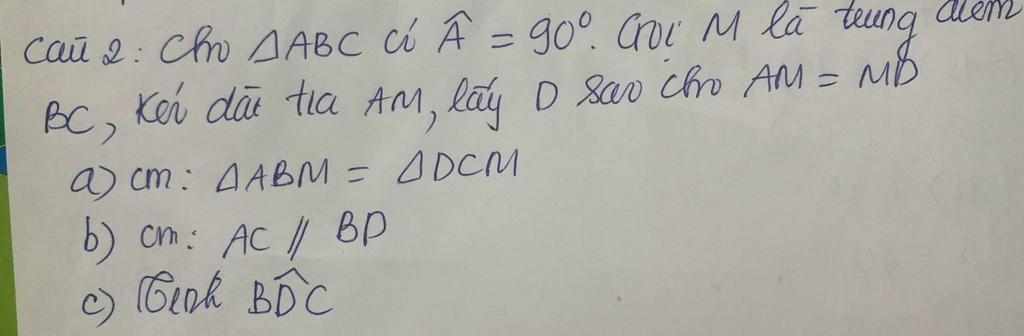 Câu 2: Cho ΔABC có Â = 90°. Gọi M là trung điểm
BC, Kéo dài tia AM, lấy D sao cho AM = MD
a) cm: ΔABM = ΔDCM
b) cm: AC // BD
c) Tính BD̂C